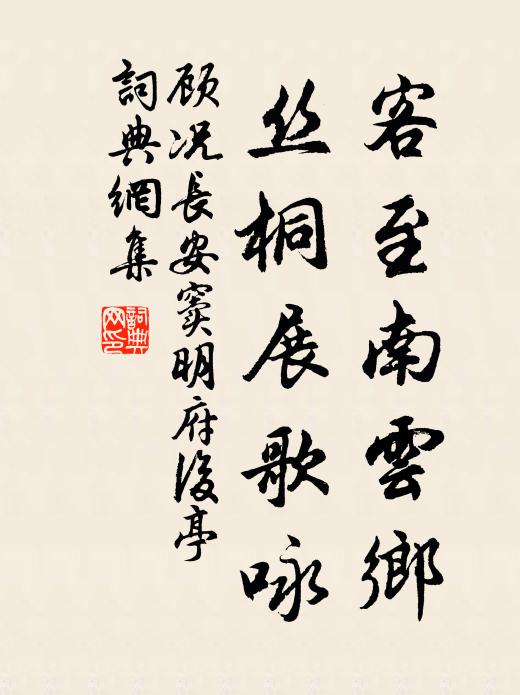 客至南雲鄉
丝桐展歌咏
顾况長安窦明府後亭
詞典網集
詞典网印